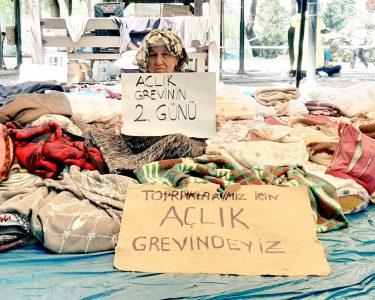 AÇLIK
GREVİNİN
2. GÜNÜ
TOPRAKLARIMIZ İÇİN
AÇLIK
GREVİNDEYİZ